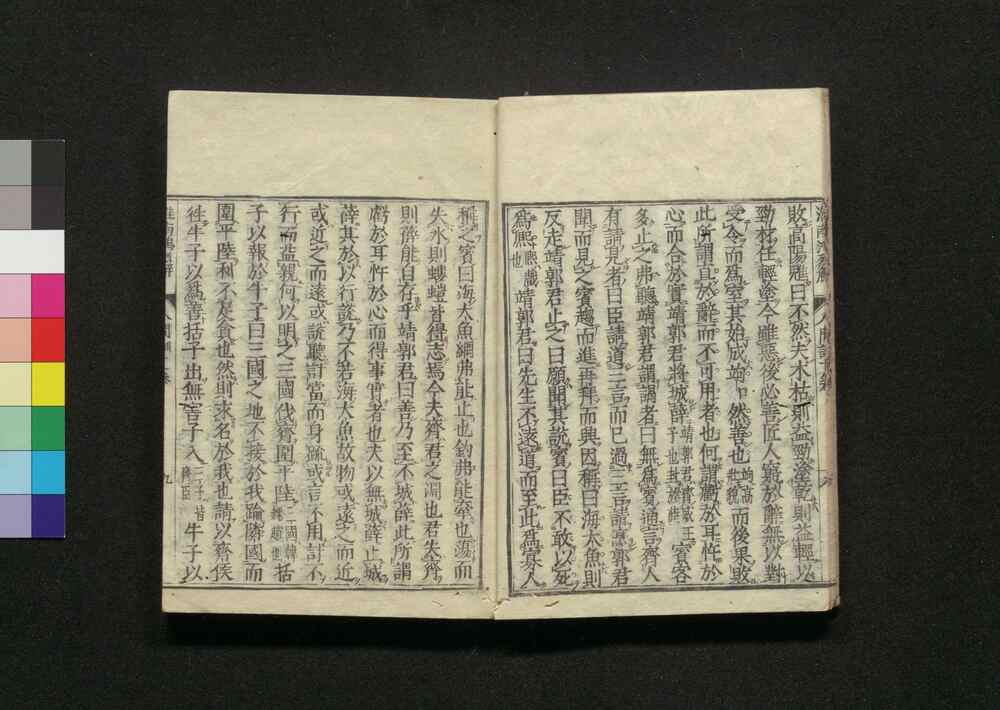 敗高陽魋曰不然夫木枯則益勁塗乾則益輕以
勁材任輕塗今雖惡後必善匠人窮於辭無以對
受令而爲室其始成竘然善也竘高壯貌而後果敗
此所謂直於辭而不可用者也何謂虧於耳忤於
心而合於實靖郭君將城薛靖郭君齊威王子也封於薛賓客
多止之弗聽靖郭君謂謁者曰無爲賓通言齊人
有請見者曰臣請道三言而已過三言請烹靖郭君
聞而見之賓趨而進再拜而興因稱曰海大魚則
反走靖郭君止之曰願聞其說賓曰臣不敢以死
爲熙熙戲也靖郭君曰先生不遠道而至此爲寡人
稱之賓曰海大魚網弗能止也釣弗能牽也蕩而
失水則螻螘皆得志焉今夫齊君之淵也君失齊
則薛能自存乎靖郭君曰善乃至不城薛此所謂
虧於耳忤於心而得事實者也夫以無城薛止城
薛其於以行說乃不若海大魚故物或遠之而近
或近之而遠或說聽計當而身疏或言不用計不
行而益親何以明之三國伐齊圍平陸三國韓趙魏括
子以報於牛子曰三國之地不接於我踰隣國而
圍平陸利不足貪也然則求名於我也請以齊侯
往牛子以爲善括子出無害子入三子皆齊臣牛子以
九